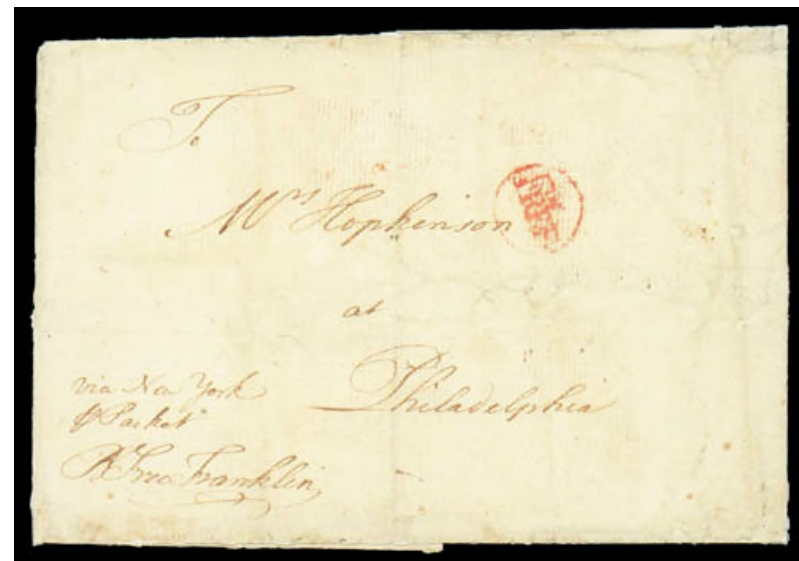 To
Mrs Hopkinson
at
Philadelphia
via New York
⅌ Packet
B Free Franklin
FREE